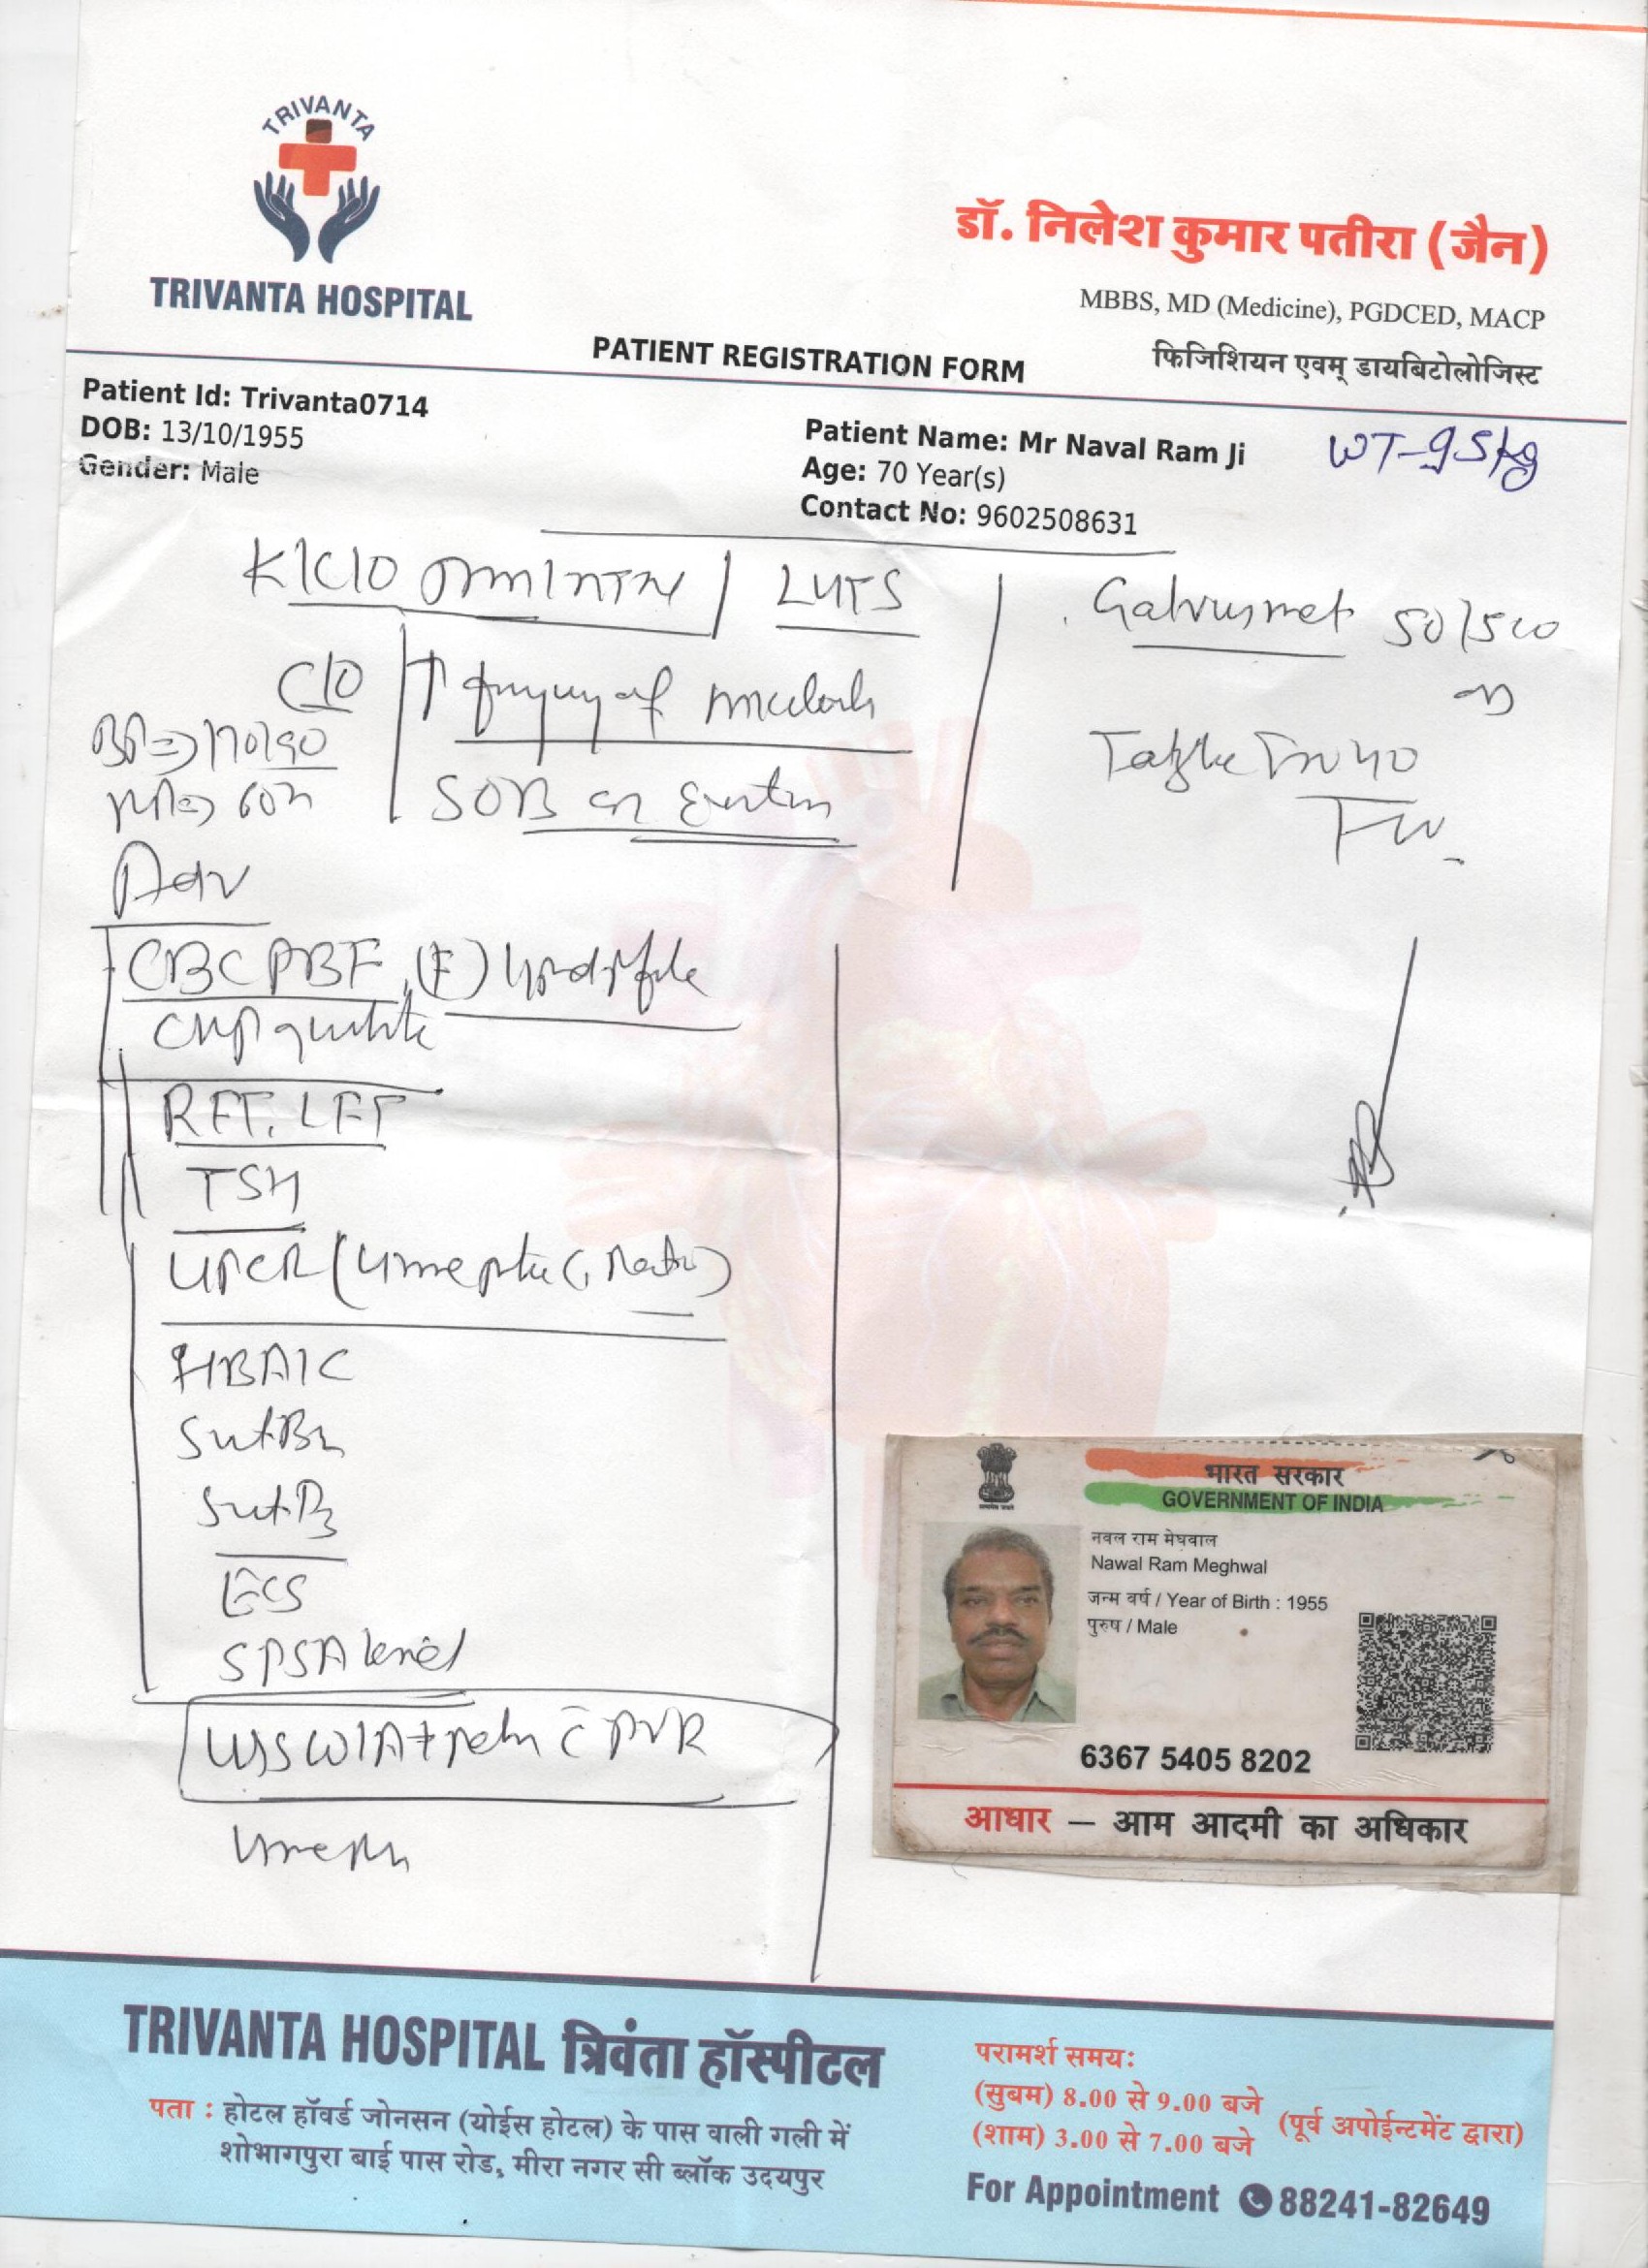 TRIVANTA
TRIVANTA HOSPITAL
डॉ. निलेश कुमार पतीरा (जैन)
MBBS, MD (Medicine), PGDCED, MACP
फिजिशियन एवम् डायबिटोलोजिस्ट
PATIENT REGISTRATION FORM
Patient Id: Trivanta0714
DOB: 13/10/1955
Gender: Male
Patient Name: Mr Naval Ram Ji
Age: 70 Year(s)
Contact No: 9602508631
WT-95kg
K/C/O HTN / LUTS
C/O ↑ of
BP => 170/90
SOB on Exertion
Galvusmet 50/500
40
Adv
CBC PBF, (F) Lipid profile
CRP quantitative
RFT, LFT
TSH
UPCR (Urine Ratio)
HBA1C
ECG
SPSA level
USS W/A + c̄ PVR
भारत सरकार
GOVERNMENT OF INDIA
नवल राम मेघवाल
Nawal Ram Meghwal
जन्म वर्ष / Year of Birth : 1955
पुरुष / Male
6367 5405 8202
आधार – आम आदमी का अधिकार
TRIVANTA HOSPITAL त्रिवंता हॉस्पीटल
पता : होटल हॉवर्ड जोनसन (योईस होटल) के पास वाली गली में
शोभागपुरा बाई पास रोड, मीरा नगर सी ब्लॉक उदयपुर
परामर्श समय:
(सुबम) 8.00 से 9.00 बजे
(शाम) 3.00 से 7.00 बजे
(पूर्व अपोईन्टमेंट द्वारा)
For Appointment 88241-82649